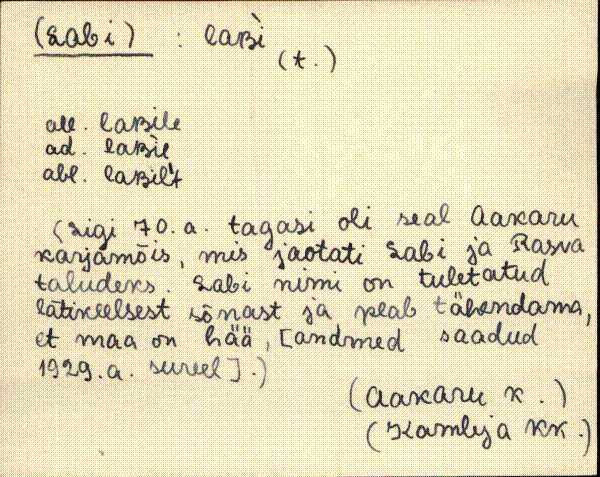 (Labi) : laʙì
(t.)
all. laʙile
ad. laʙil
abl. laʙil't
(Ligi 70. a. tagasi oli seal Aakaru
karjamõis, mis jaotati Labi ja Rasva
taludeks. Labi nimi on tuletatud
lätikeelsest sõnast ja peab tähendama,
et maa on hää, [andmed saadud
1929. a. suvel].)
(Aakaru k.)
(Kambja kk.)